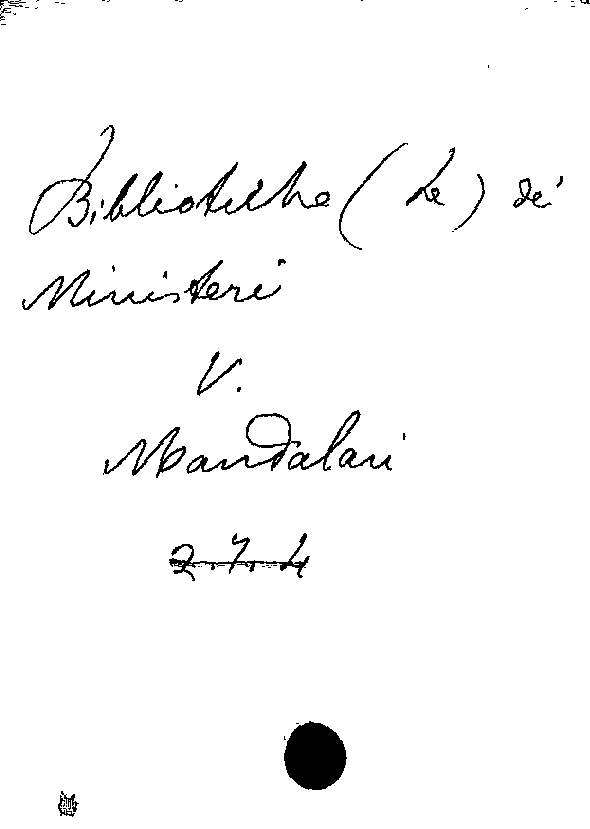 Biblioteche (Le) dei
Ministeri
V.
Mandalari
2.7.4